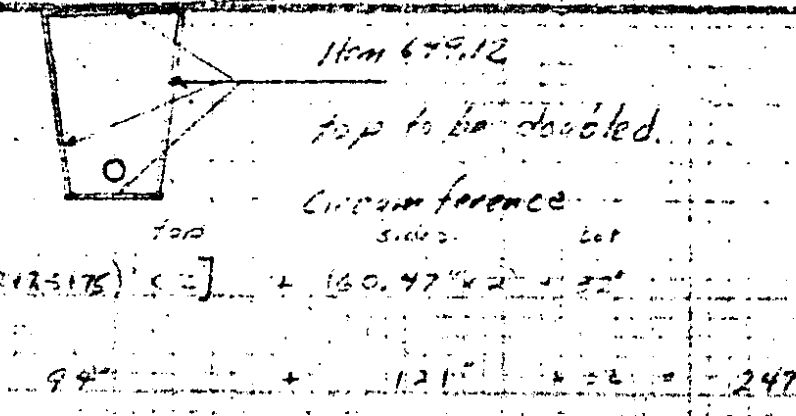 Item 679.12
top to be doubled.
Circumference
top sides bot
x 2] + (60.47" x 2) + 32"
94" + 121" + 32 = 247